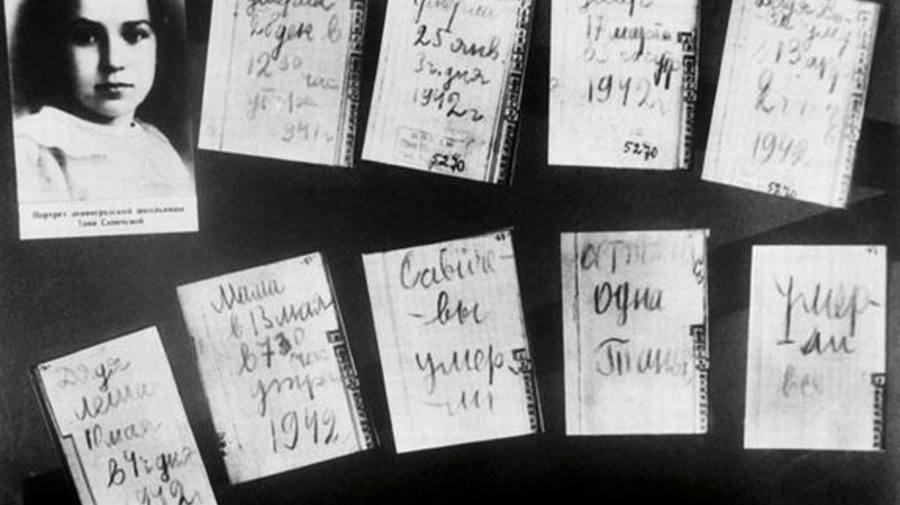 Портрет ленинградской школьницы
Тани Савичевой
умерла
28 дек в
12 30
час
утра
941 г
умерла
25 янв.
3 ч. дня
1942 г
5270
17 марта
1942 г
5270
умер
в 13 апр
2 ч
1942
5270
Дядя
Леша
10 мая
в 4 ч дня
942 г
Мама
в 13 мая
в 7 30
час
утра
1942
Савиче-
-вы
умер
-ли
одна
Таня
умер-
ли
все